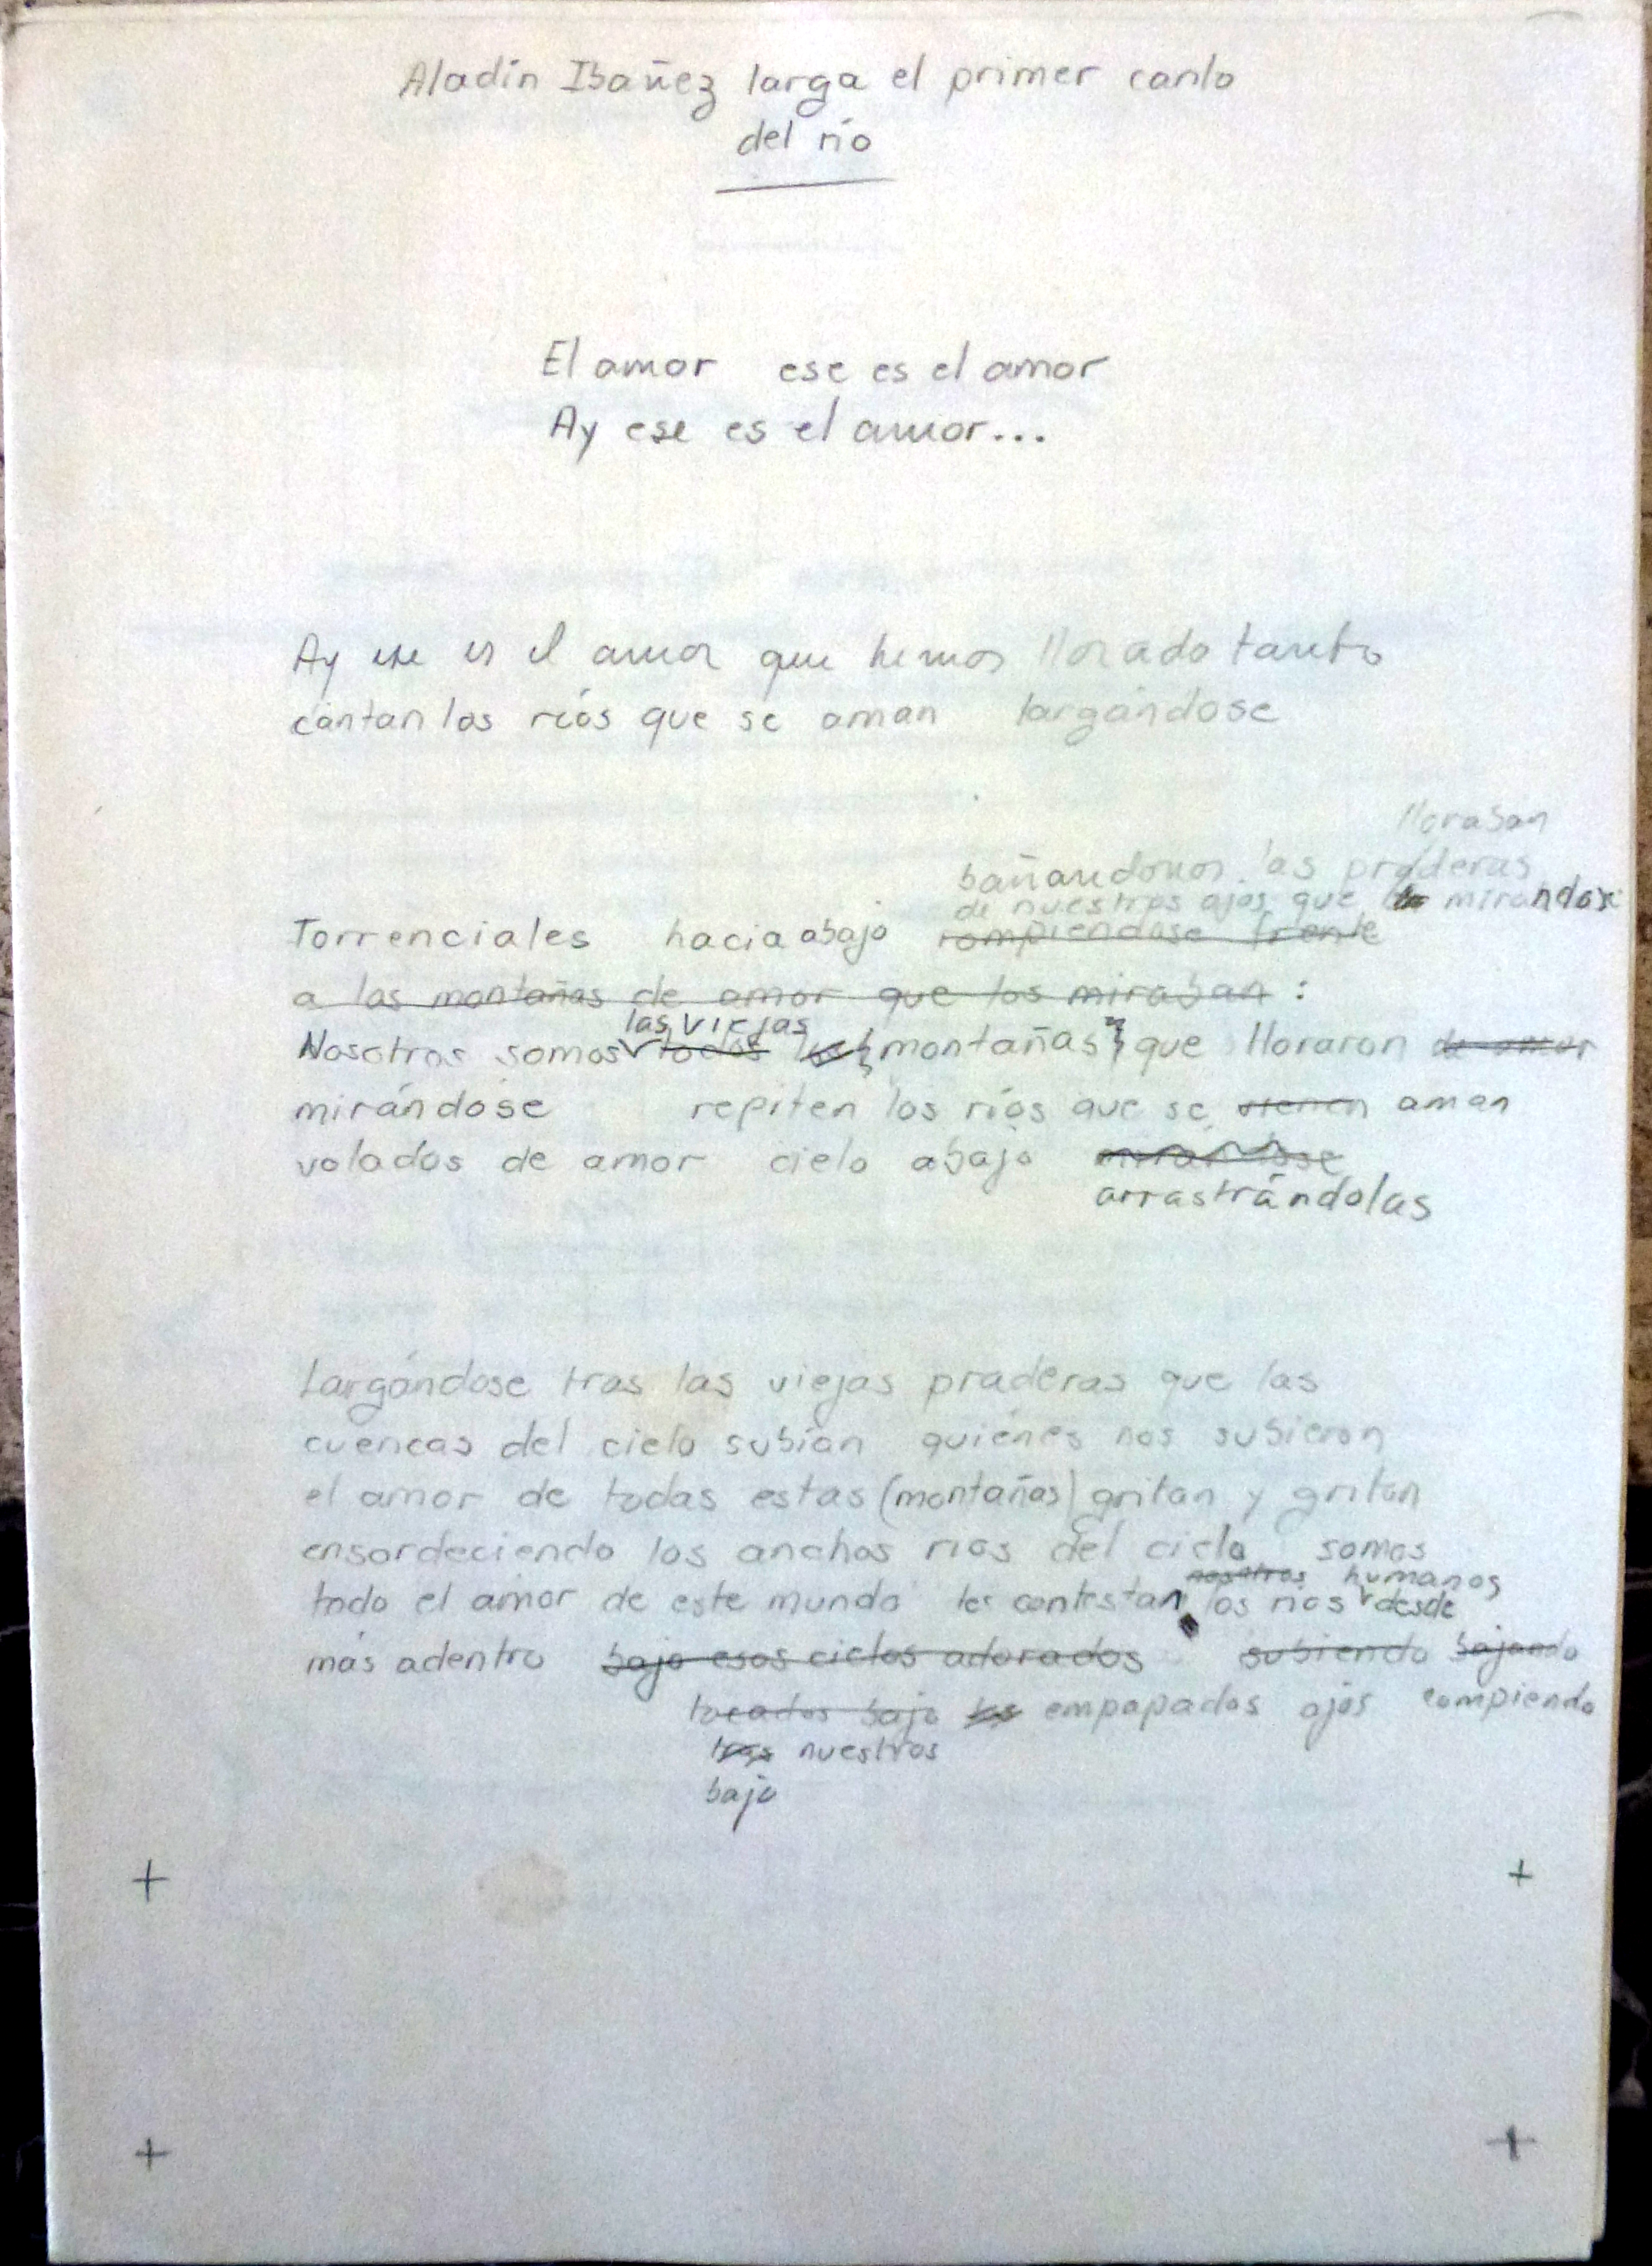 Aladín Ibañez larga el primer canto
del río
El amor ese es el amor
Ay ese es el amor...
Ay ese es el amor que hemos llorado tanto
cantan los ríos que se aman largándose
lloraban
bañandonos las praderas
de nuestros ojos que mirandose
Torrenciales hacia abajo rompiendose frente
a las montañas de amor que los miraban :
las viejas
Nosotros somos todos montañas que lloraron de amor
mirándose repiten los ríos que se vienen aman
volados de amor cielo abajo
arrastrándolas
Largándose tras las viejas praderas que las
cuencas del cielo subían quiénes nos subieron
el amor de todas estas (montañas) gritan y gritan
ensordeciendo los anchos ríos del cielo somos
nosotros humanos
todo el amor de este mundo les contestan los ríos desde
más adentro bajo esos cielos adorados subiendo bajando
tocados bajo los empapados ojos rompiendo
tras nuestros
bajo